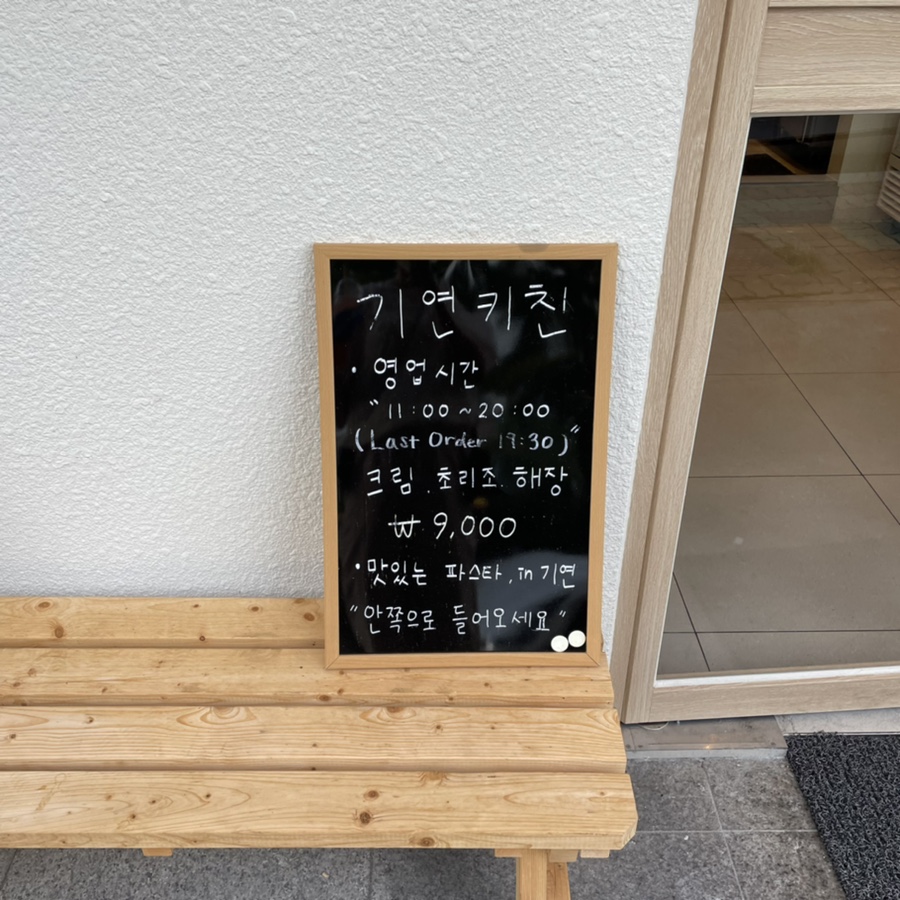 기연키친
· 영업시간
"11:00~20:00
(Last Order 19:30)"
크림. 초리조. 해장
₩ 9,000
· 맛있는 파스타, in 기연
"안쪽으로 들어오세요"